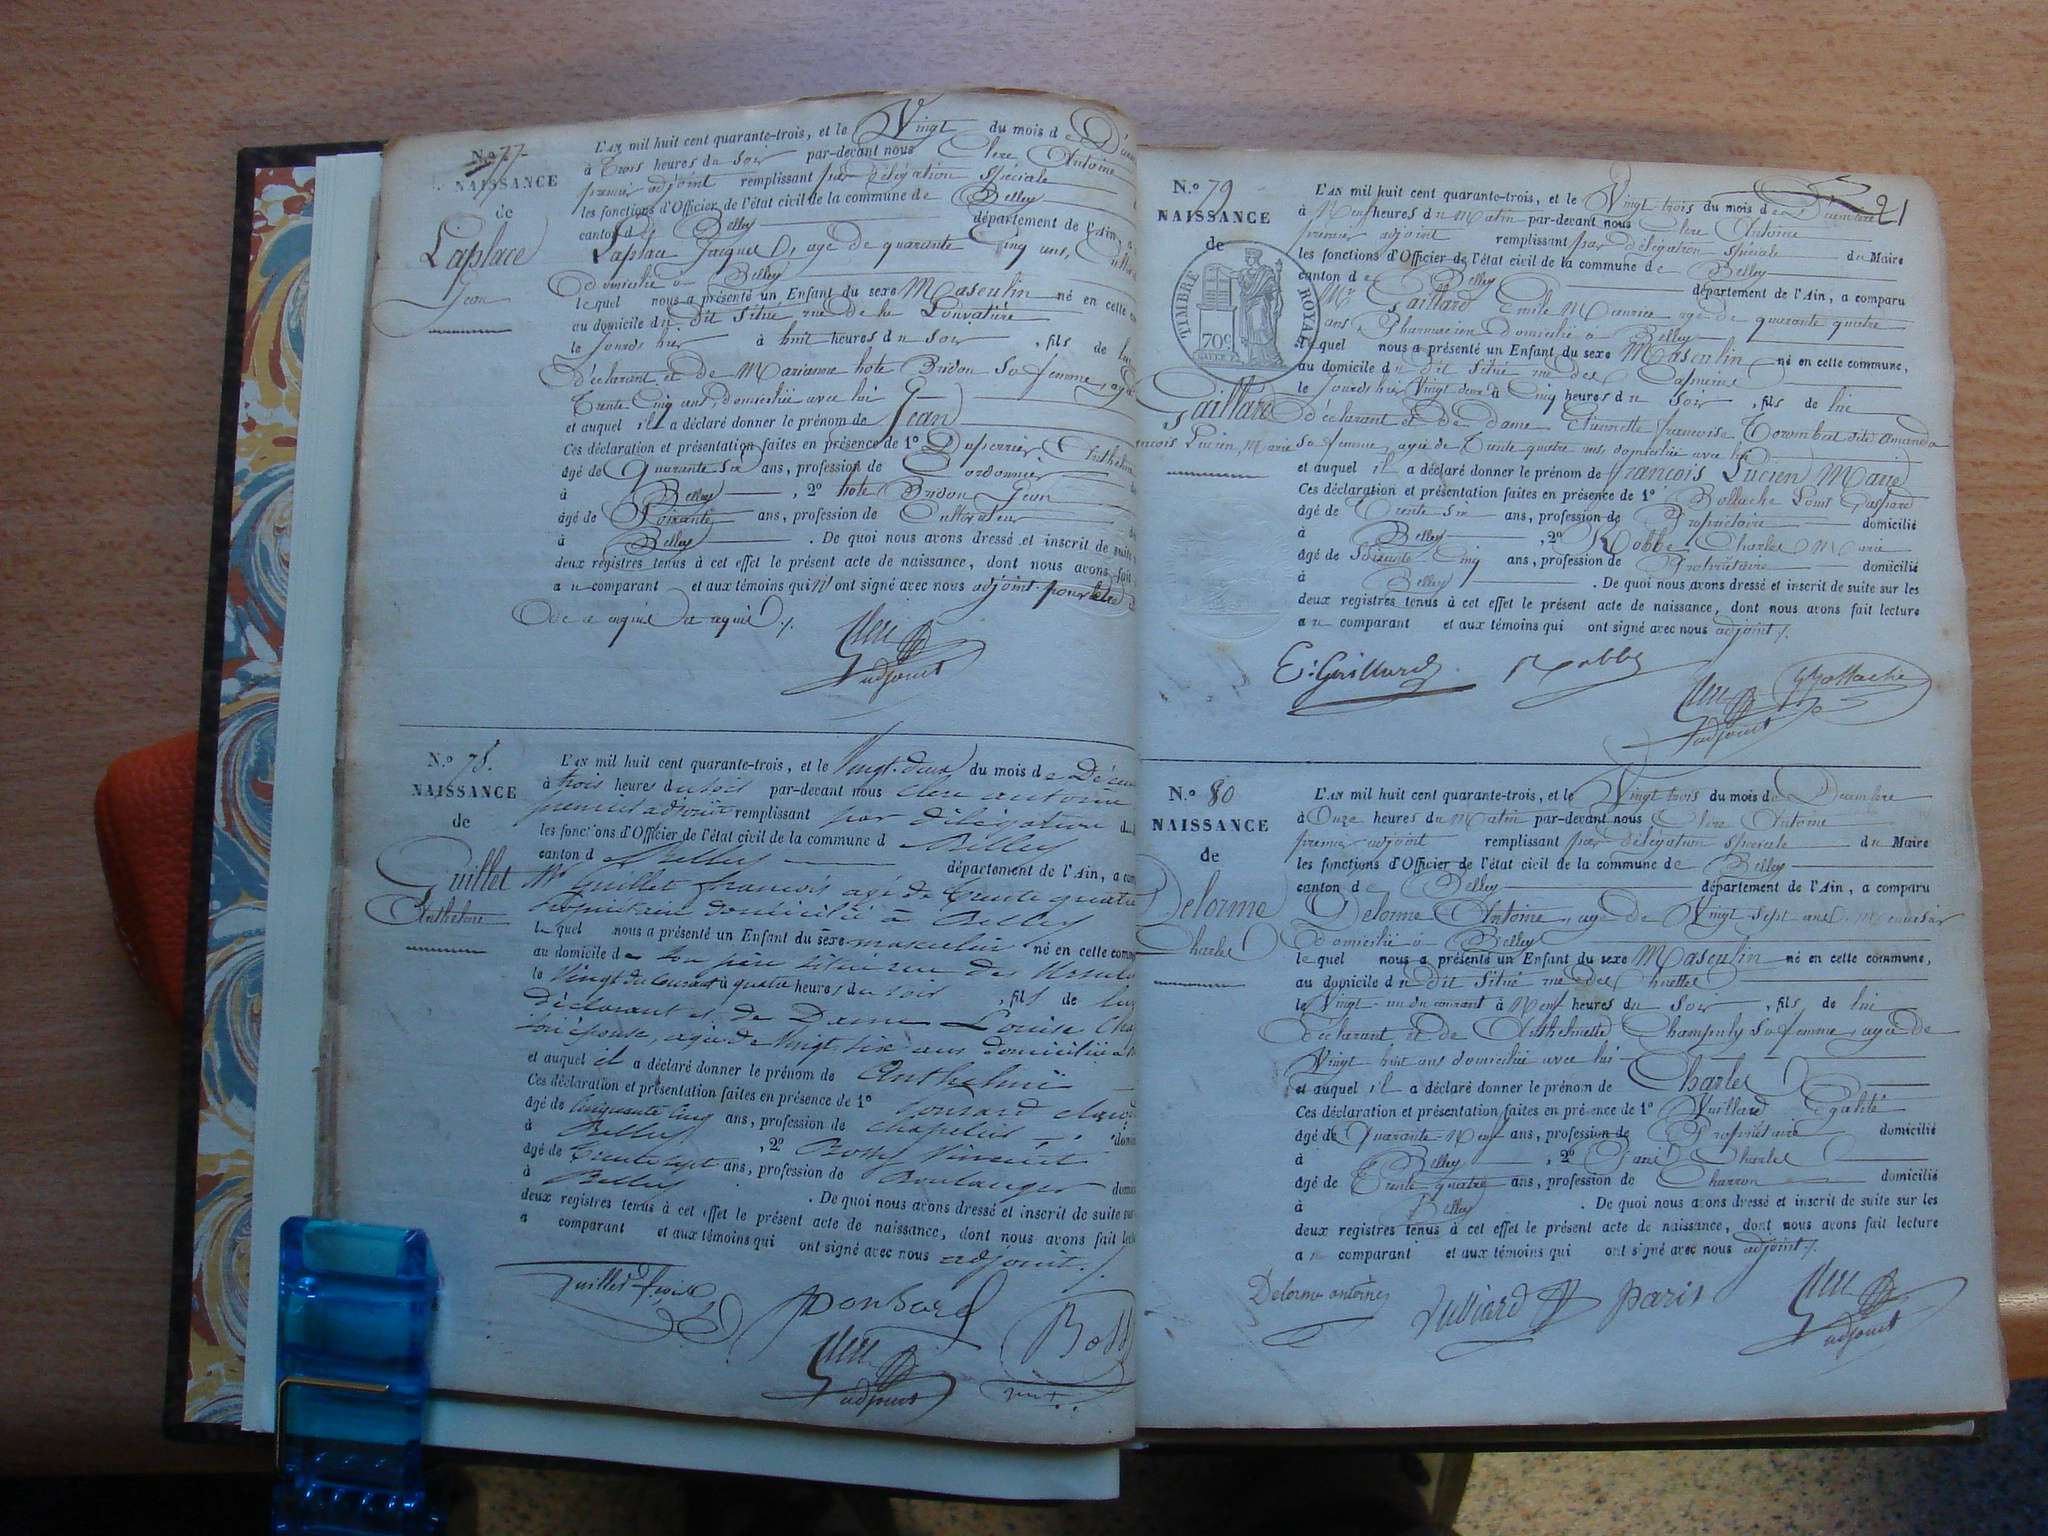 N.o 77
NAISSANCE
de
Laplace
Jean
L'AN mil huit cent quarante-trois, et le Vingt du mois de
à trois heures du soir par-devant nous Clerc Antoine
premier adjoint remplissant par délégation spéciale
les fonctions d'Officier de l'état civil de la commune de Belley
canton de Belley département de l'Ain, a
Laplace Jacques, agé de quarante cinq ans,
domicilié à Belley
lequel nous a présenté un Enfant du sexe Masculin né en cette
au domicile du dit situé rue de la
le jourds hier à huit heures du soir, fils de lui
déclarant et de Marianne hote Bridon sa femme, agée
trente cinq ans, domiciliée avec lui
et auquel il a déclaré donner le prénom de Jean
Ces déclaration et présentation faites en présence de 1o Duperrier
âgé de quarante six ans, profession de Cordonnier
à Belley, 2o hote Bridon Jean
âgé de Soixante ans, profession de Cultivateur
à Belley. De quoi nous avons dressé et inscrit de suite
deux registres tenus à cet effet le présent acte de naissance, dont nous avons fait
au comparant et aux témoins qui n'ont signé avec nous adjoint pour
de ce enquis et requis ./.
Clerc
adjoint
N.o 78.
NAISSANCE
de
Guillet
Anthelme
L'AN mil huit cent quarante-trois, et le Vingt-deux du mois de
à trois heures du soir par-devant nous Clerc antoine
premier adjoint remplissant par délégation
les fonctions d'Officier de l'état civil de la commune d Belley
canton d Belley département de l'Ain, a
Mr Guillet françois agé de trente quatre
domicilié à Belley
lequel nous a présenté un Enfant du sexe masculin né en cette
au domicile de son père situé rue des
le Vingt du courant à quatre heures du soir, fils de lui
déclarant et de Dame Louise
son épouse, agée de Vingt six ans domiciliée
et auquel il a déclaré donner le prénom de Anthelme
Ces déclaration et présentation faites en présence de 1o Ponsard
âgé de Cinquante Cinq ans, profession de chapelier
à Belley, 2o Vincent
âgé de trente sept ans, profession de Boulanger
à Belley. De quoi nous avons dressé et inscrit de suite
deux registres tenus à cet effet le présent acte de naissance, dont nous avons fait
a comparant et aux témoins qui ont signé avec nous adjoint ./.
Ponsard
Clerc
adjoint
21
N.o 79
NAISSANCE
de
TIMBRE ROYAL
70c
Gaillard
François Lucien Marie
L'AN mil huit cent quarante-trois, et le Vingt trois du mois de Décembre
à Neuf heures du Matin par-devant nous Clerc Antoine
premier adjoint remplissant par délégation spéciale du Maire
les fonctions d'Officier de l'état civil de la commune de Belley
canton de Belley département de l'Ain, a comparu
Mr Gaillard Emile Maurice agé de quarante quatre
ans, Pharmacien domicilié à Belley
lequel nous a présenté un Enfant du sexe Masculin né en cette commune,
au domicile du dit situé rue des Capucins
le jourds hier Vingt deux à Cinq heures du soir, fils de lui
déclarant et de dame Etiennette françoise Torombat dite Amanda
sa femme, agée de trente quatre ans domiciliée avec lui
et auquel il a déclaré donner le prénom de françois Lucien Marie
Ces déclaration et présentation faites en présence de 1o Bollache Louis Gaspard
âgé de trente six ans, profession de Propriétaire domicilié
à Belley, 2o Robbe Charles Marie
âgé de Soixante Cinq ans, profession de Propriétaire domicilié
à Belley. De quoi nous avons dressé et inscrit de suite sur les
deux registres tenus à cet effet le présent acte de naissance, dont nous avons fait lecture
au comparant et aux témoins qui ont signé avec nous adjoint ./.
E. Gaillard Robbe Bollache
Clerc
adjoint
N.o 80
NAISSANCE
de
Delorme
Charles
L'AN mil huit cent quarante-trois, et le Vingt trois du mois de Décembre
à Onze heures du Matin par-devant nous Clerc Antoine
premier adjoint remplissant par délégation spéciale du Maire
les fonctions d'Officier de l'état civil de la commune de Belley
canton de Belley département de l'Ain, a comparu
Delorme Antoine, agé de Vingt sept ans Menuisier
domicilié à Belley
lequel nous a présenté un Enfant du sexe Masculin né en cette commune,
au domicile du dit situé rue des
le Vingt-un du courant à Neuf heures du Soir, fils de lui
déclarant et de Anthelmette sa femme, agée de
Vingt huit ans domiciliée avec lui
et auquel il a déclaré donner le prénom de Charles
Ces déclaration et présentation faites en présence de 1o Vuillard Egalité
âgé de Quarante-Neuf ans, profession de Propriétaire domicilié
à Belley, 2o Paris Charles
âgé de Trente-quatre ans, profession de Charron domicilié
à Belley. De quoi nous avons dressé et inscrit de suite sur les
deux registres tenus à cet effet le présent acte de naissance, dont nous avons fait lecture
au comparant et aux témoins qui ont signé avec nous adjoint ./.
Delorme antoine Vulliard paris
Clerc
adjoint